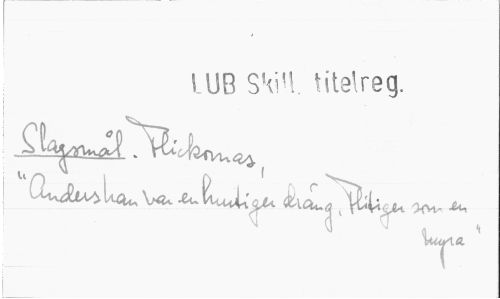 LUB Skill. titelreg.
Slagsmål. Flickornas,
"Anders han var en hurtiger dräng, Flitiger som en
myra"